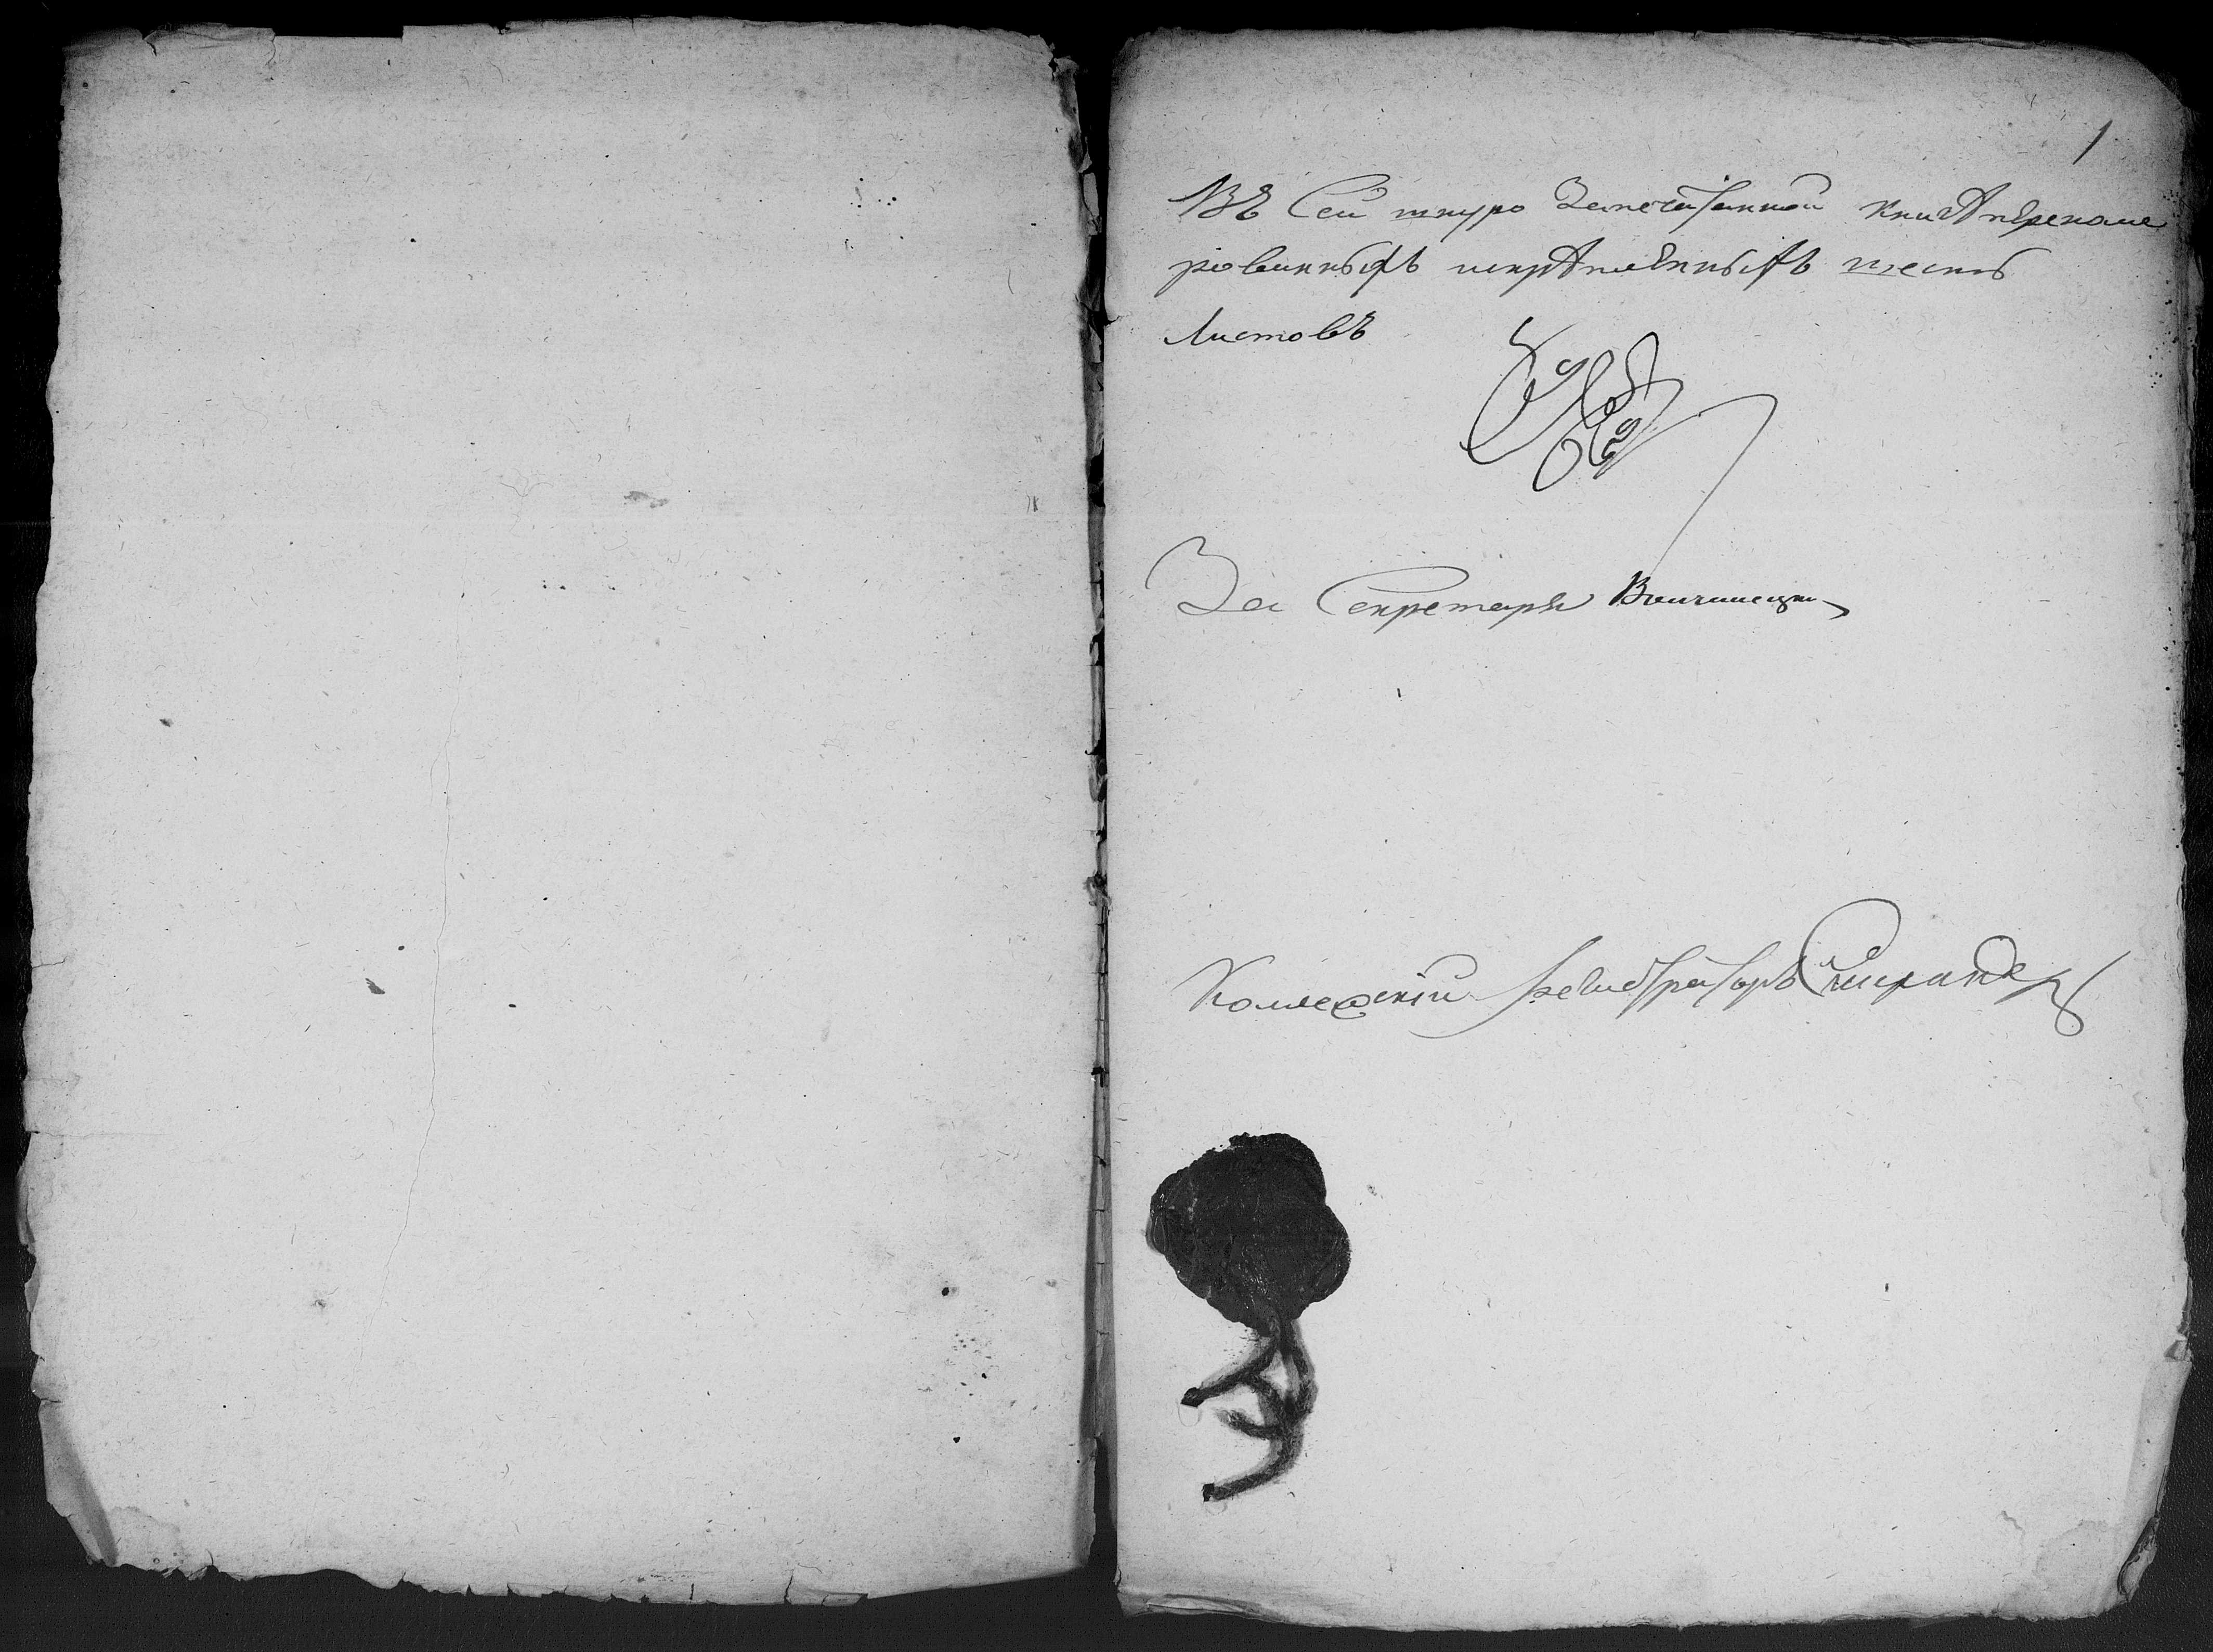 1
Въ Сей шнуро Запечатанной книгѣ перенуме
рованныхъ искрѣпленныхъ шесть
Листовъ
За Секретаря
Коллежскій регистраторъ